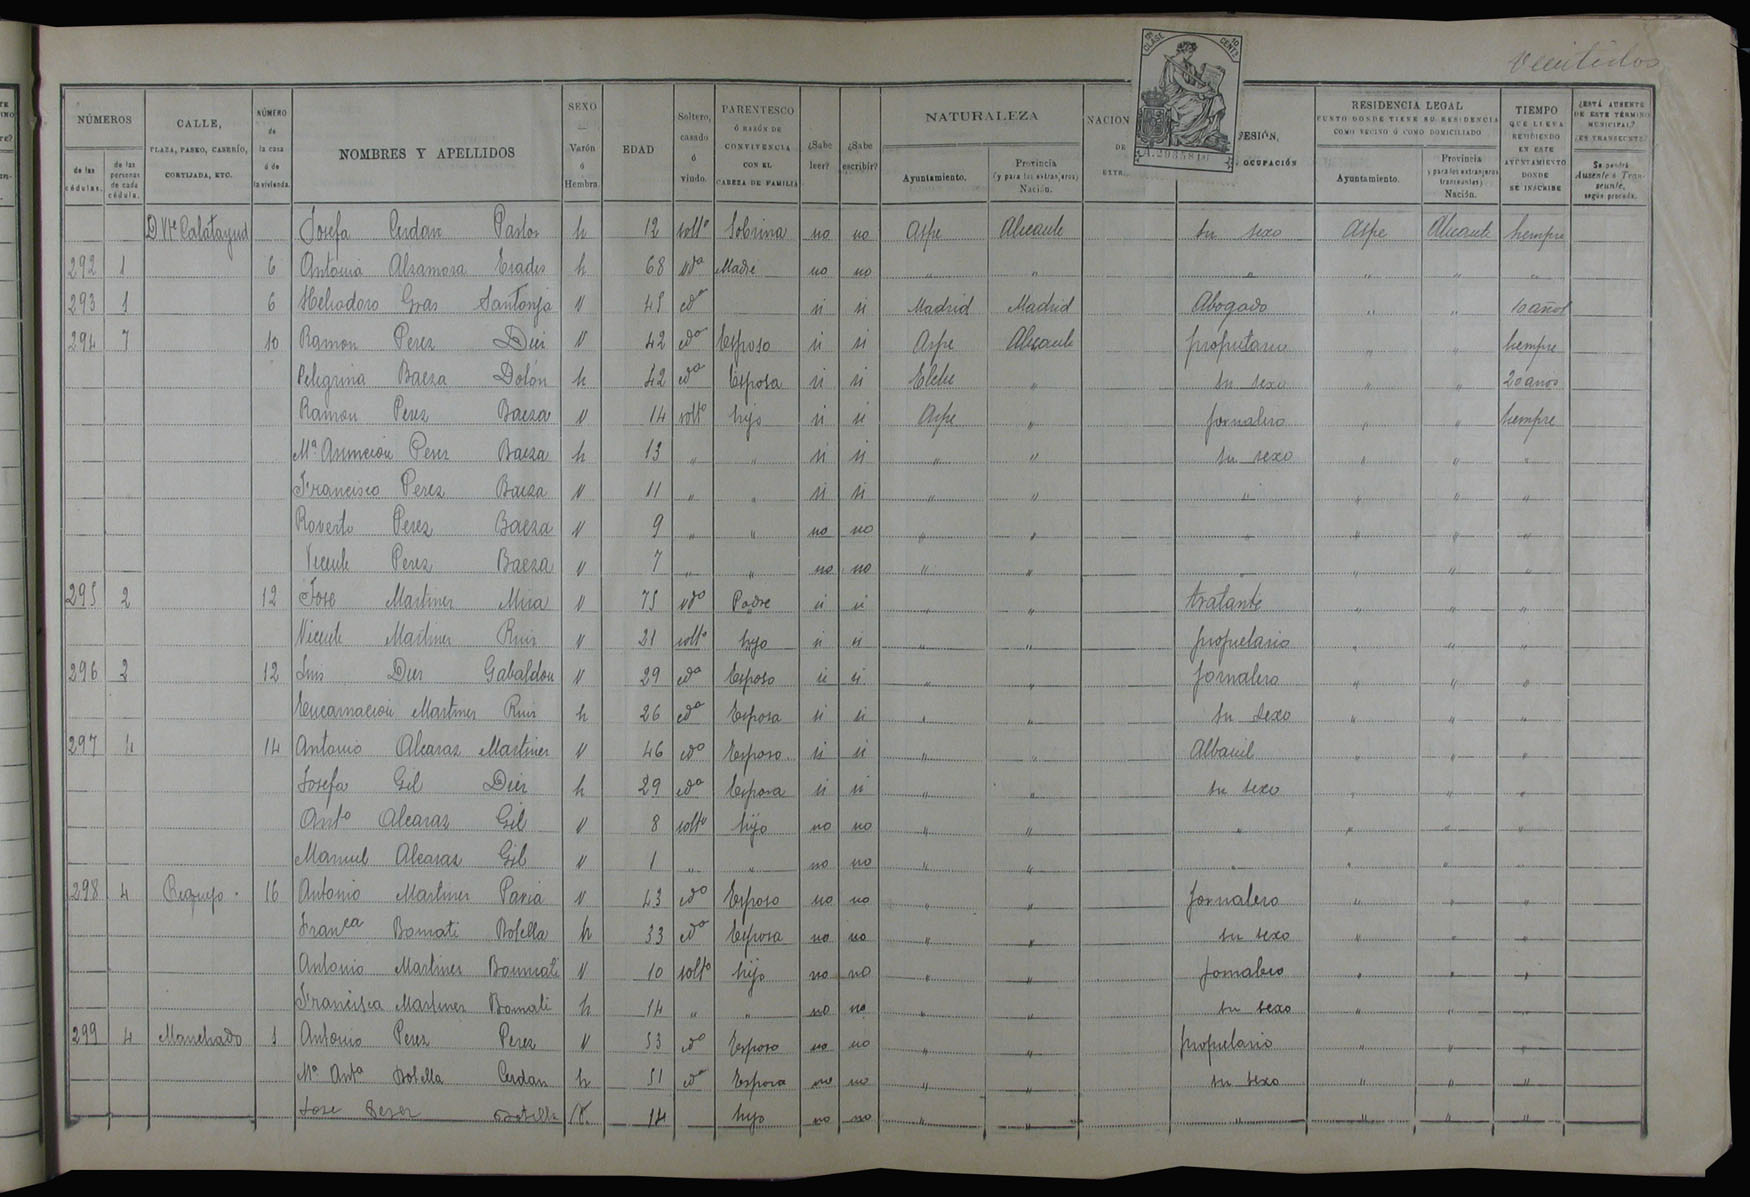 Veintidos
5ª CLASE 10 CENTS
A.2085810
NÚMEROS
de las cédulas.
de las personas de cada cédula.
CALLE,
PLAZA, PASEO, CASERÍO,
CORTIJADA, ETC.
NÚMERO de la casa ó de la vivienda.
NOMBRES Y APELLIDOS
SEXO — Varón ó Hembra.
EDAD
Soltero, casado ó viudo.
PARENTESCO
Ó RAZÓN DE
CONVIVENCIA
CON EL
CABEZA DE FAMILIA
¿Sabe leer?
¿Sabe escribir?
NATURALEZA
Ayuntamiento.
Provincia (y para los extranjeros) Nación.
NACION
DE
EXTR
ESIÓN,
OCUPACIÓN
RESIDENCIA LEGAL
PUNTO DONDE TIENE SU RESIDENCIA
COMO VECINO Ó COMO DOMICILIADO
Ayuntamiento.
Provincia y para los extranjeros transeuntes) Nación.
TIEMPO
QUE LLEVA
RESIDIENDO
EN ESTE
AYUNTAMIENTO
DONDE
SE INSCRIBE
¿ESTÁ AUSENTE
DE ESTE TÉRMINO
MUNICIPAL?
¿ES TRANSEUNTE?
Se pondrá Ausente ó Transeunte, según proceda.
D. Vte Calatayud Josefa Cerdan Pastor h 12 soltº Sobrina no no Aspe Alicante su sexo Aspe Alicante Siempre
292 1 6 Antonia Alzamora Erades h 68 vda Madre no no " " " " " "
293 1 6 Heliodoro Gras Santonja v 45 cdo si si Madrid Madrid Abogado " " 10 años
294 7 10 Ramon Perez Diez v 42 cdo Esposo si si Aspe Alicante propietario " " Siempre
Peligrina Baeza Dolón h 42 cda Esposa si si Elche " su sexo " " 20 años
Ramon Perez Baeza v 14 soltº hijo si si Aspe " jornalero " " Siempre
Mª Asuncion Perez Baeza h 13 " " si si " " su sexo " " "
Francisco Perez Baeza v 11 " " si si " " " " " "
Roverto Perez Baeza v 9 " " no no " " " " "
Vicente Perez Baeza v 7 " " no no " " " " " "
295 2 12 Jose Martinez Mira v 75 vdo Padre si si " " tratante " " "
Vicente Martinez Ruiz v 21 soltº hijo si si " " propietario " " "
296 2 12 Luis Diez Gabaldon v 29 cdo Esposo si si " " Jornalero " " "
Encarnacion Martinez Ruiz h 26 cda Esposa si si " " su sexo " " "
297 4 14 Antonio Alcaraz Martinez v 46 cdo Esposo si si " " Albanil " " "
Josefa Gil Diez h 29 cda Esposa si si " " su sexo " " "
Antº Alcaraz Gil v 8 soltº hijo no no " " " " " "
Manuel Alcaraz Gil v 1 " " no no " " " " " "
298 4 16 Antonio Martinez Pavia v 43 cdo Esposo no no " " Jornalero " " "
Franca Bomati Botella h 33 cda Esposa no no " " su sexo " " "
Antonio Martinez Bonmati v 10 soltº hijo no no " " Jornalero " " "
Francisca Martinez Bomati h 14 " " no no " " su sexo " " "
299 4 Manchado 1 Antonio Perez Perez v 53 cdo Esposo no no " " propietario " " "
Mª Antª Botella Cerdan h 51 cda Esposa no no " " su sexo " " "
Jose Perez Botella V. 14 hijo no no " " " " " "